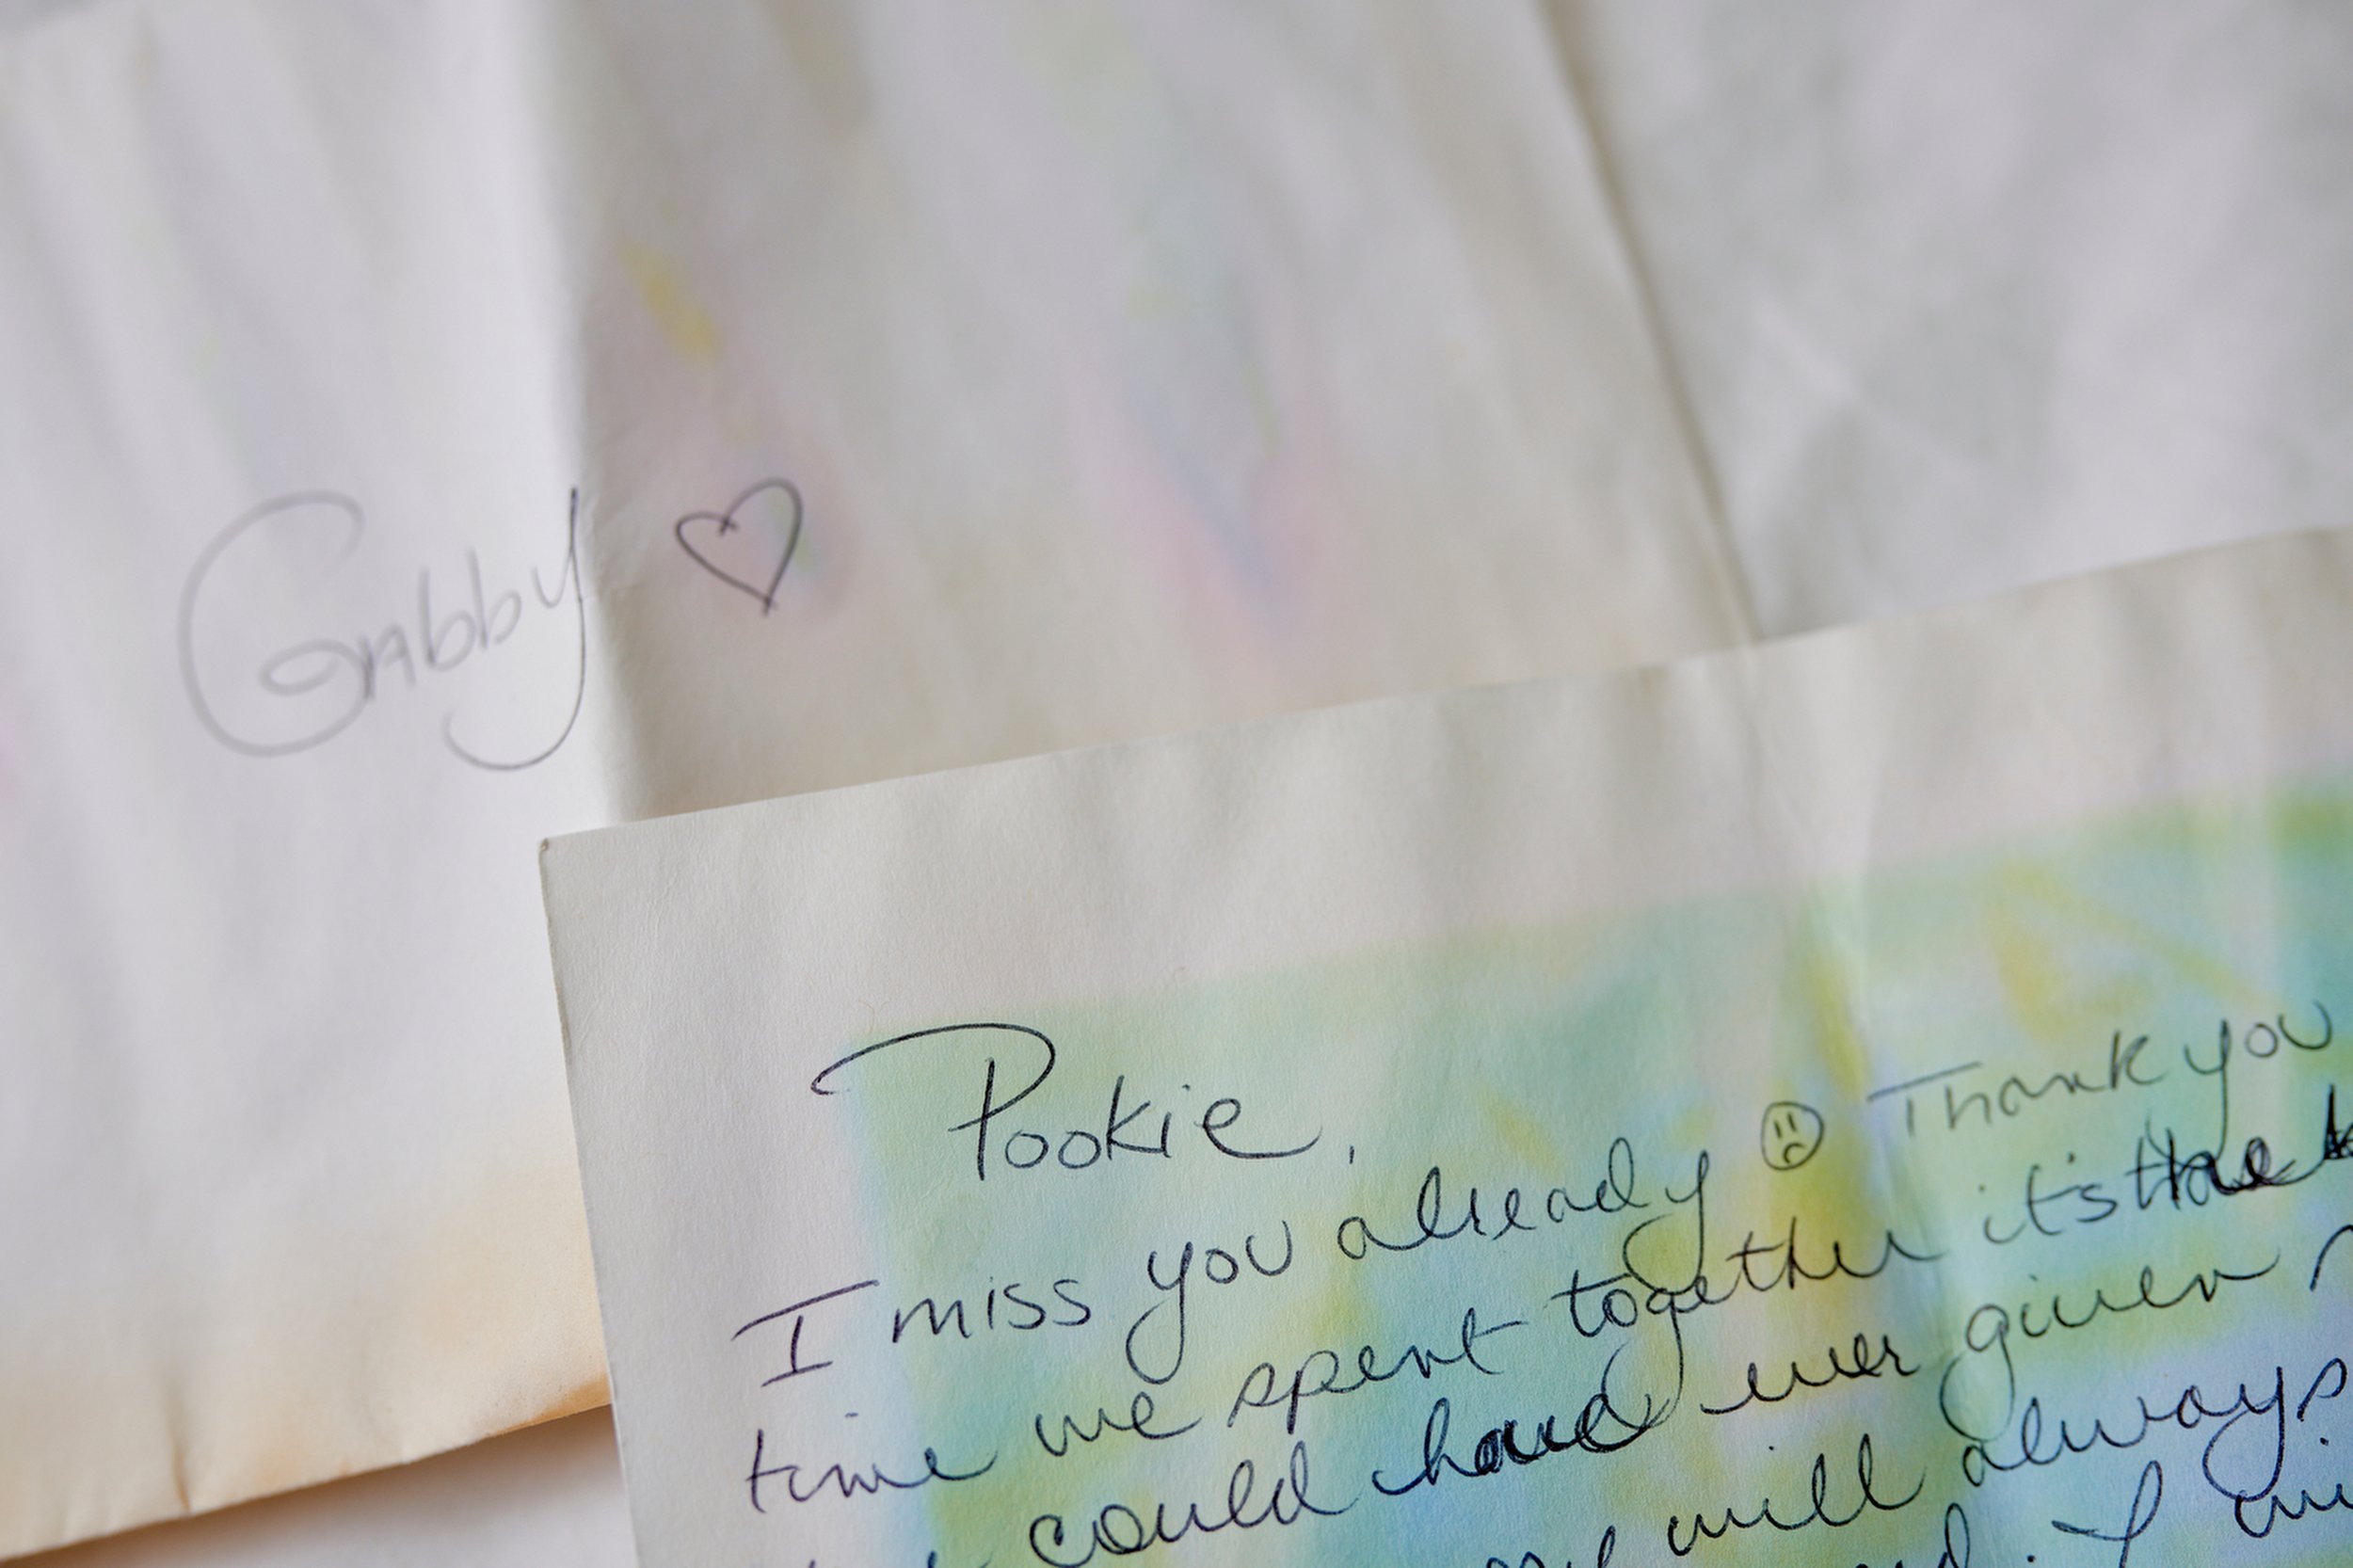 Gabby ♡
Pookie,
I miss you already ☹ Thank you
time we spent together it's the
could have ever given
will always
I